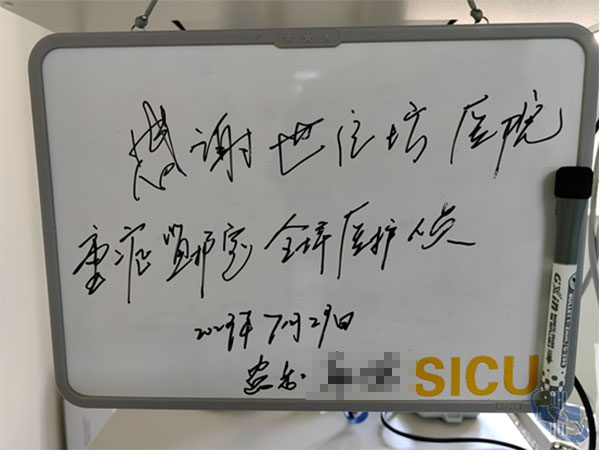 感谢世纪坛医院
重症监护室全体医护人员
2023年7月29日
患者
SICU